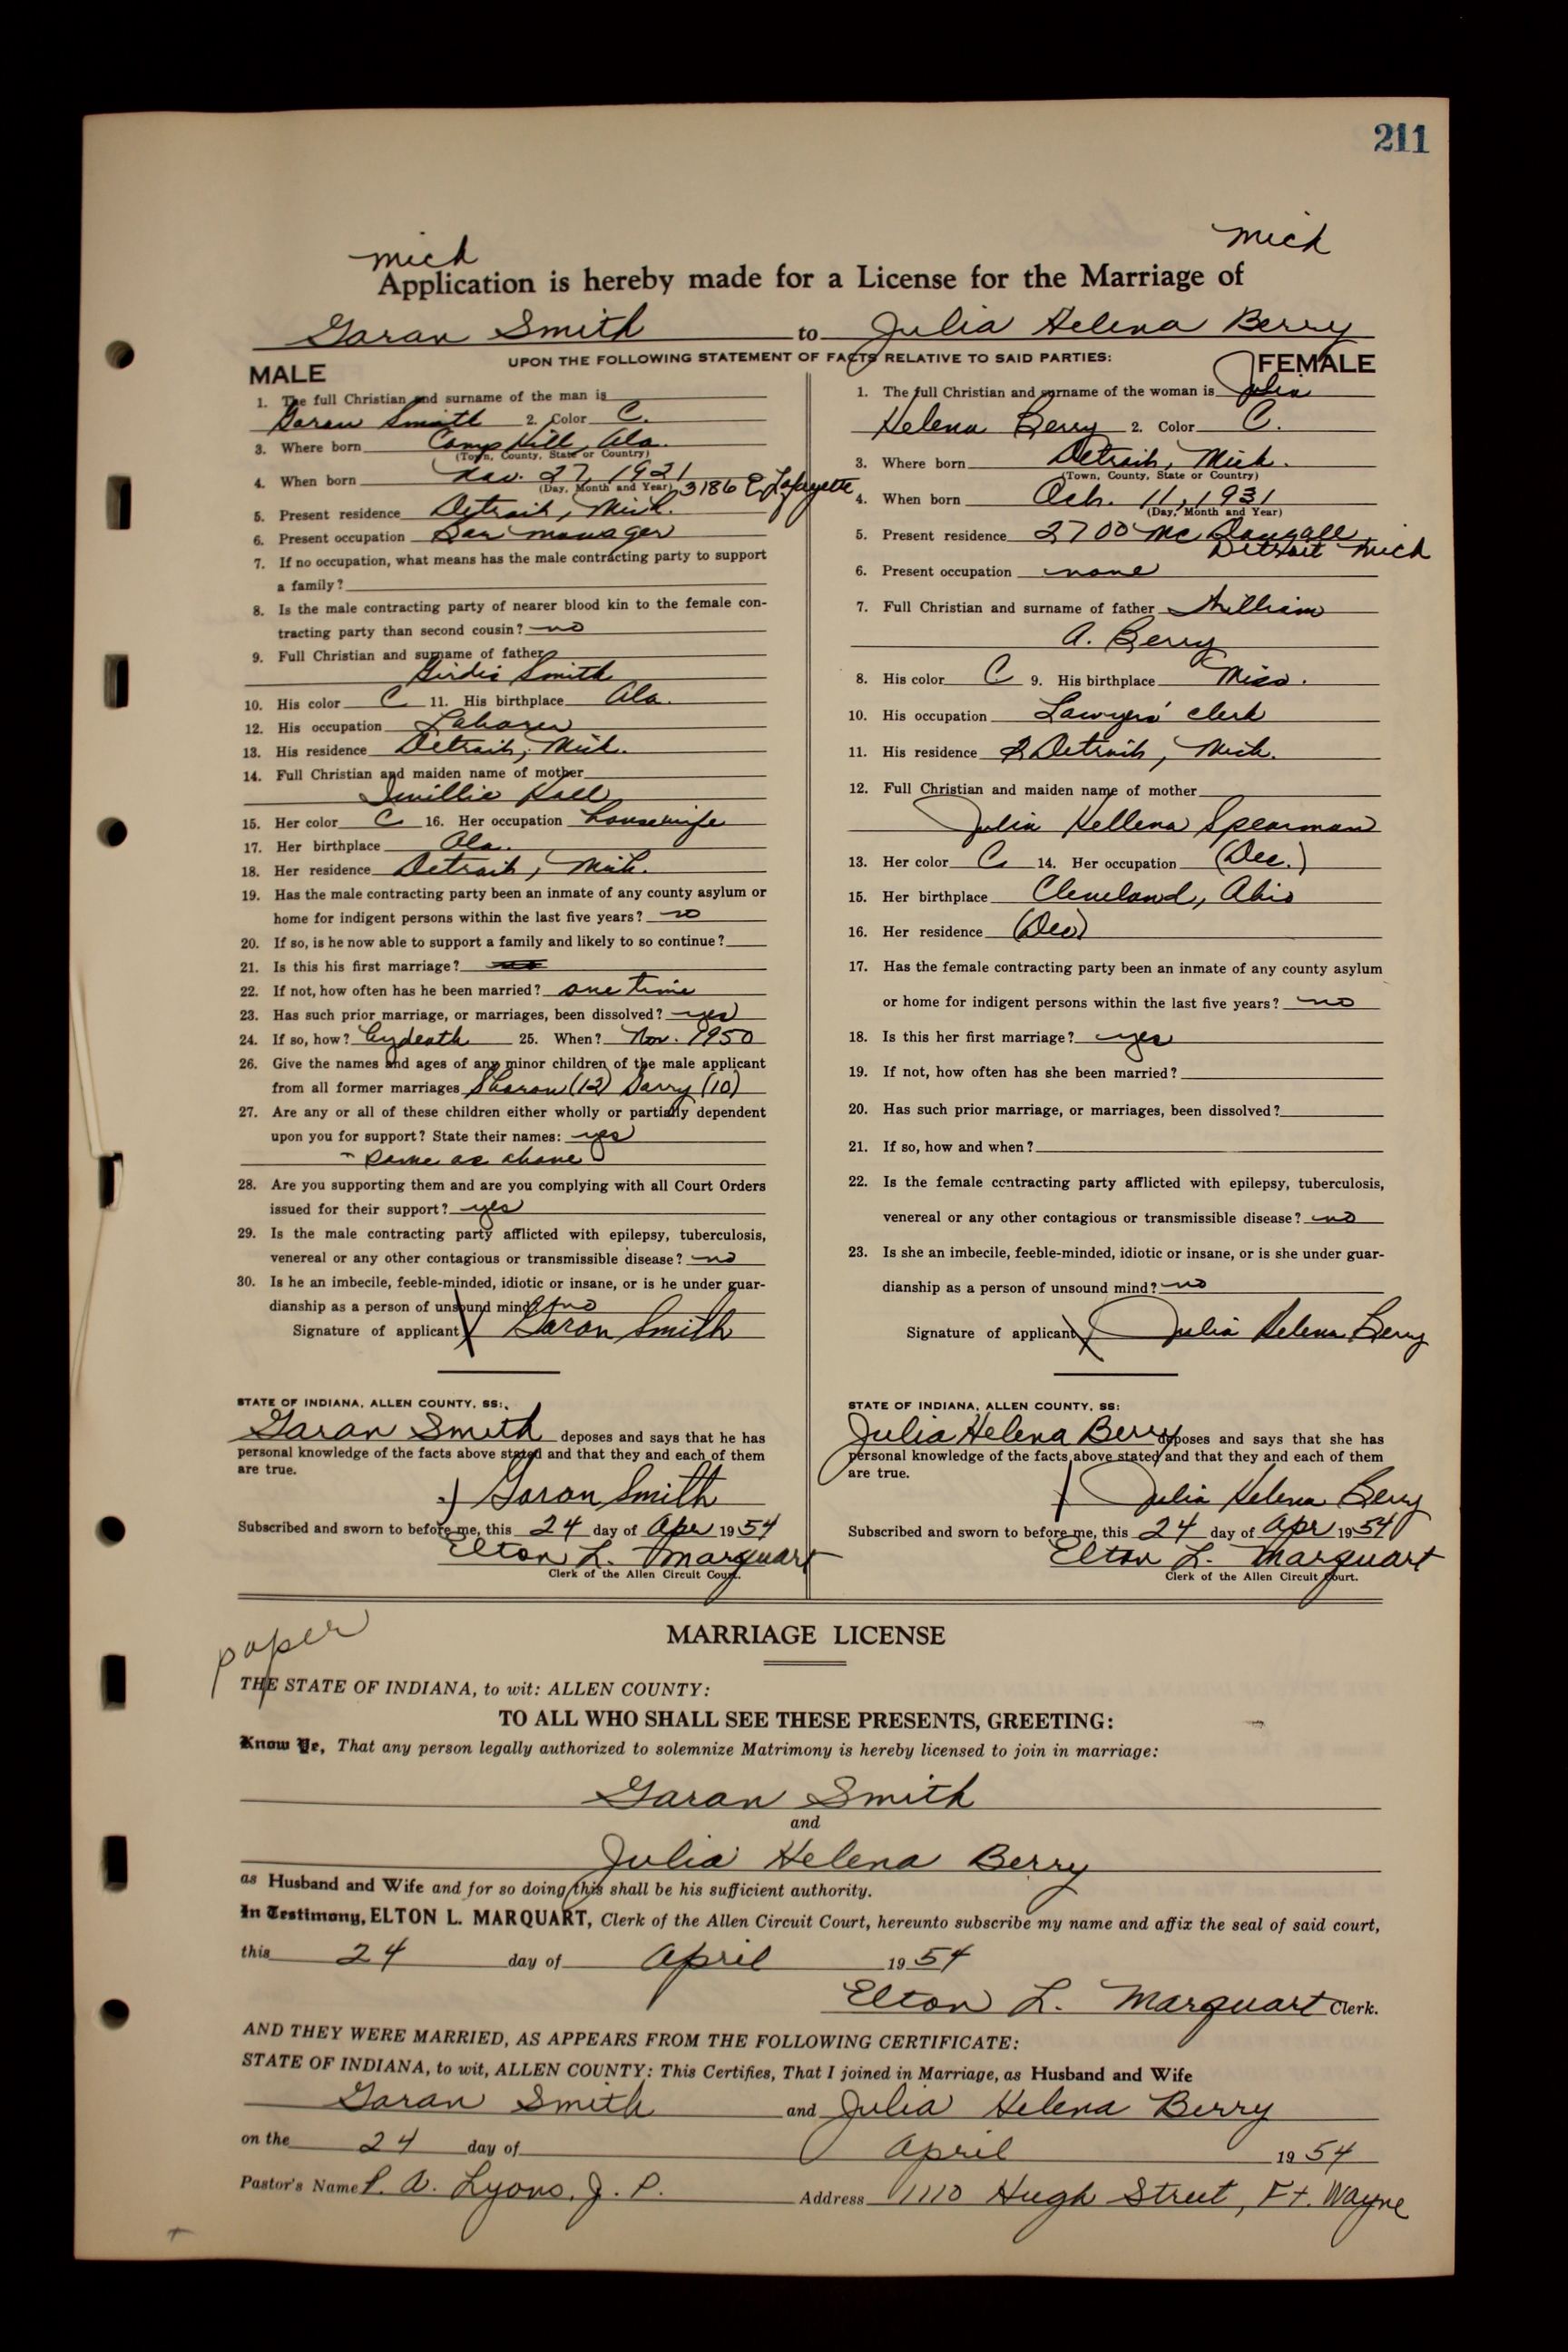 211
mich
mich
Application is hereby made for a License for the Marriage of
Garan Smith to Julia Helena Berry
UPON THE FOLLOWING STATEMENT OF FACTS RELATIVE TO SAID PARTIES:
MALE
1. The full Christian and surname of the man is
Garan Smith 2. Color C.
3. Where born Camp Hill, Ala.
(Town, County, State or Country)
4. When born Nov. 27, 1921
(Day, Month and Year) 3186 E Lafayette
5. Present residence Detroit, Mich.
6. Present occupation Bar manager
7. If no occupation, what means has the male contracting party to support
a family?
8. Is the male contracting party of nearer blood kin to the female con-
tracting party than second cousin? no
9. Full Christian and surname of father
Girdis Smith
10. His color C 11. His birthplace Ala.
12. His occupation Laborer
13. His residence Detroit, Mich.
14. Full Christian and maiden name of mother
15. Her color C 16. Her occupation Housewife
17. Her birthplace Ala.
18. Her residence Detroit, Mich.
19. Has the male contracting party been an inmate of any county asylum or
home for indigent persons within the last five years? no
20. If so, is he now able to support a family and likely to so continue?
21. Is this his first marriage?
22. If not, how often has he been married? one time
23. Has such prior marriage, or marriages, been dissolved? yes
24. If so, how? by death 25. When? Nov. 1950
26. Give the names and ages of any minor children of the male applicant
from all former marriages Sharon (12) Darry (10)
27. Are any or all of these children either wholly or partially dependent
upon you for support? State their names: yes
- same as above
28. Are you supporting them and are you complying with all Court Orders
issued for their support? yes
29. Is the male contracting party afflicted with epilepsy, tuberculosis,
venereal or any other contagious or transmissible disease? no
30. Is he an imbecile, feeble-minded, idiotic or insane, or is he under guar-
dianship as a person of unsound mind? no
Signature of applicant Garan Smith
STATE OF INDIANA, ALLEN COUNTY, SS:
Garan Smith deposes and says that he has
personal knowledge of the facts above stated and that they and each of them
are true.
Garan Smith
Subscribed and sworn to before me, this 24 day of Apr 1954
Elton L. Marquart
Clerk of the Allen Circuit Court.
FEMALE
1. The full Christian and surname of the woman is Julia
Helena Berry 2. Color C.
3. Where born Detroit, Mich.
(Town, County, State or Country)
4. When born Oct. 11, 1931
(Day, Month and Year)
5. Present residence 2700 Mc Dougall
Detroit Mich
6. Present occupation none
7. Full Christian and surname of father William
A. Berry
8. His color C 9. His birthplace Miss.
10. His occupation Lawyers' clerk
11. His residence Detroit, Mich.
12. Full Christian and maiden name of mother
Julia Hellena Spearman
13. Her color C 14. Her occupation (Dec.)
15. Her birthplace Cleveland, Ohio
16. Her residence (Dec)
17. Has the female contracting party been an inmate of any county asylum
or home for indigent persons within the last five years? no
18. Is this her first marriage? yes
19. If not, how often has she been married?
20. Has such prior marriage, or marriages, been dissolved?
21. If so, how and when?
22. Is the female contracting party afflicted with epilepsy, tuberculosis,
venereal or any other contagious or transmissible disease? no
23. Is she an imbecile, feeble-minded, idiotic or insane, or is she under guar-
dianship as a person of unsound mind? no
Signature of applicant Julia Helena Berry
STATE OF INDIANA, ALLEN COUNTY, SS:
Julia Helena Berry deposes and says that she has
personal knowledge of the facts above stated and that they and each of them
are true.
Julia Helena Berry
Subscribed and sworn to before me, this 24 day of Apr 1954
Elton L. Marquart
Clerk of the Allen Circuit Court.
paper
MARRIAGE LICENSE
THE STATE OF INDIANA, to wit: ALLEN COUNTY:
TO ALL WHO SHALL SEE THESE PRESENTS, GREETING:
Know Ye, That any person legally authorized to solemnize Matrimony is hereby licensed to join in marriage:
Garan Smith
and
Julia Helena Berry
as Husband and Wife and for so doing this shall be his sufficient authority.
In Testimony, ELTON L. MARQUART, Clerk of the Allen Circuit Court, hereunto subscribe my name and affix the seal of said court,
this 24 day of April 1954
Elton L. Marquart Clerk.
AND THEY WERE MARRIED, AS APPEARS FROM THE FOLLOWING CERTIFICATE:
STATE OF INDIANA, to wit, ALLEN COUNTY: This Certifies, That I joined in Marriage, as Husband and Wife
Garan Smith and Julia Helena Berry
on the 24 day of April 1954
Pastor's Name P. A. Lyons, J. P. Address 1110 Hugh Street, Ft. Wayne